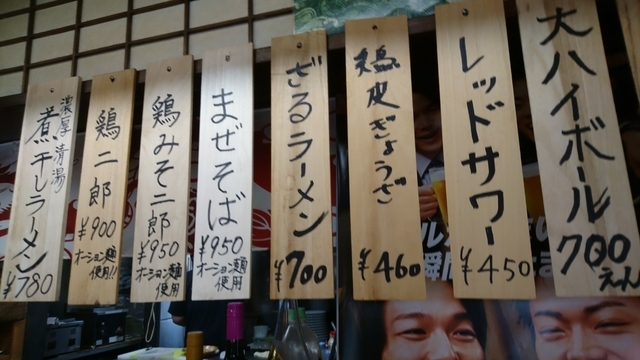 大ハイボール
700
えん
レッドサワー
¥450
鶏皮ぎょうざ
¥460
ざるラーメン
¥700
まぜそば
¥950
オーション麺
使用
鶏みそ二郎
¥950
オーション麺
使用
鶏二郎
¥900
オーション麺
使用!!
濃厚清湯
煮干しラーメン
¥780
瞬間